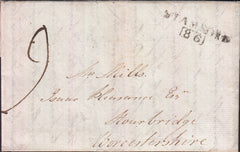 STAMFORD
[86]
9
Mr Mills.
Isaac Kinsman Esqr
Stourbridge
Worcestershire